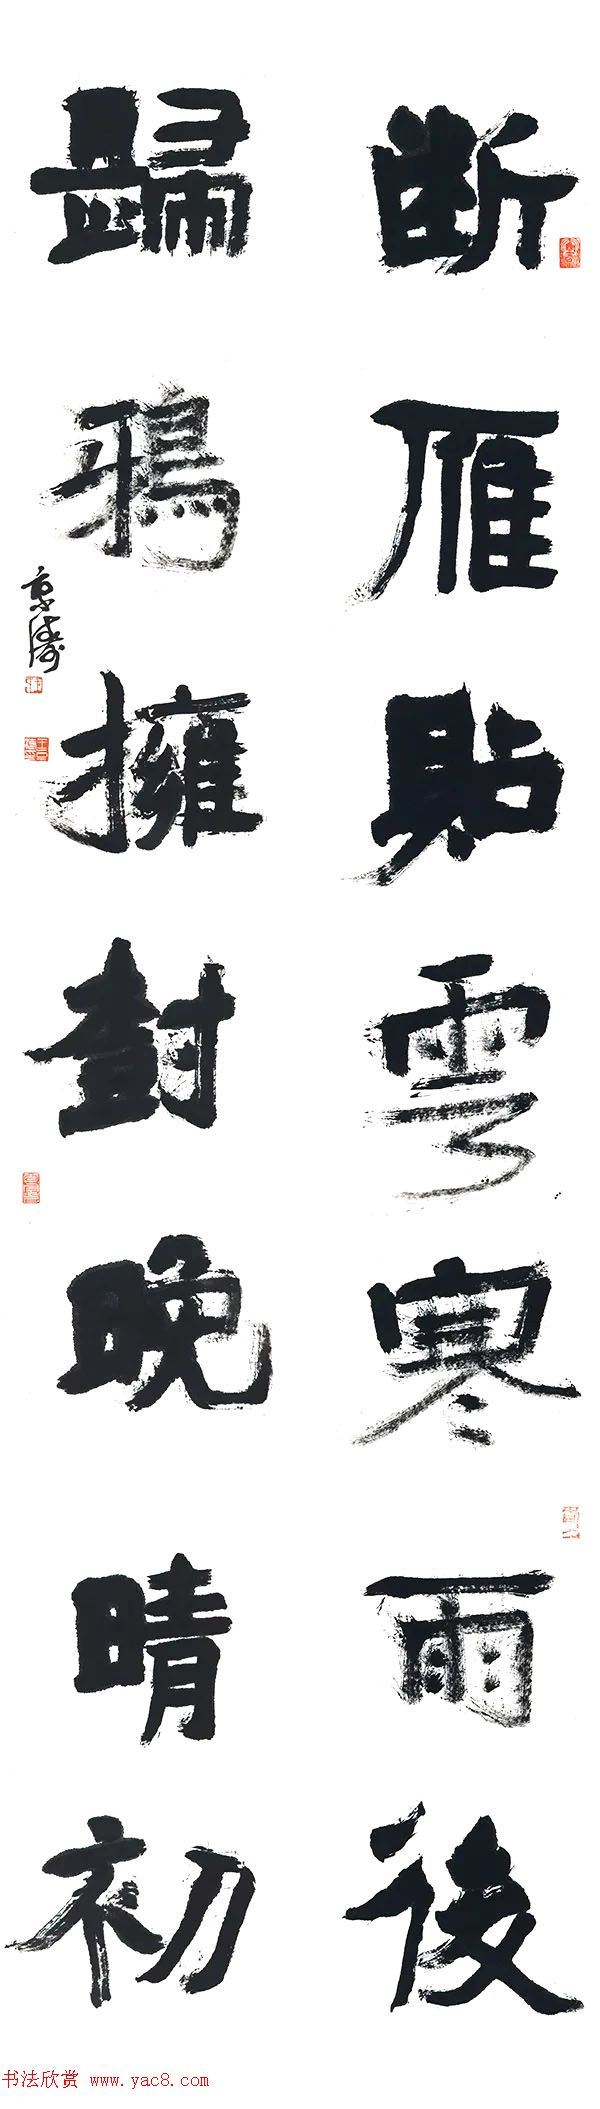 断雁貼雲寒雨後
歸鴉擁封晚晴初
京濤
书法欣赏 www.yac8.com